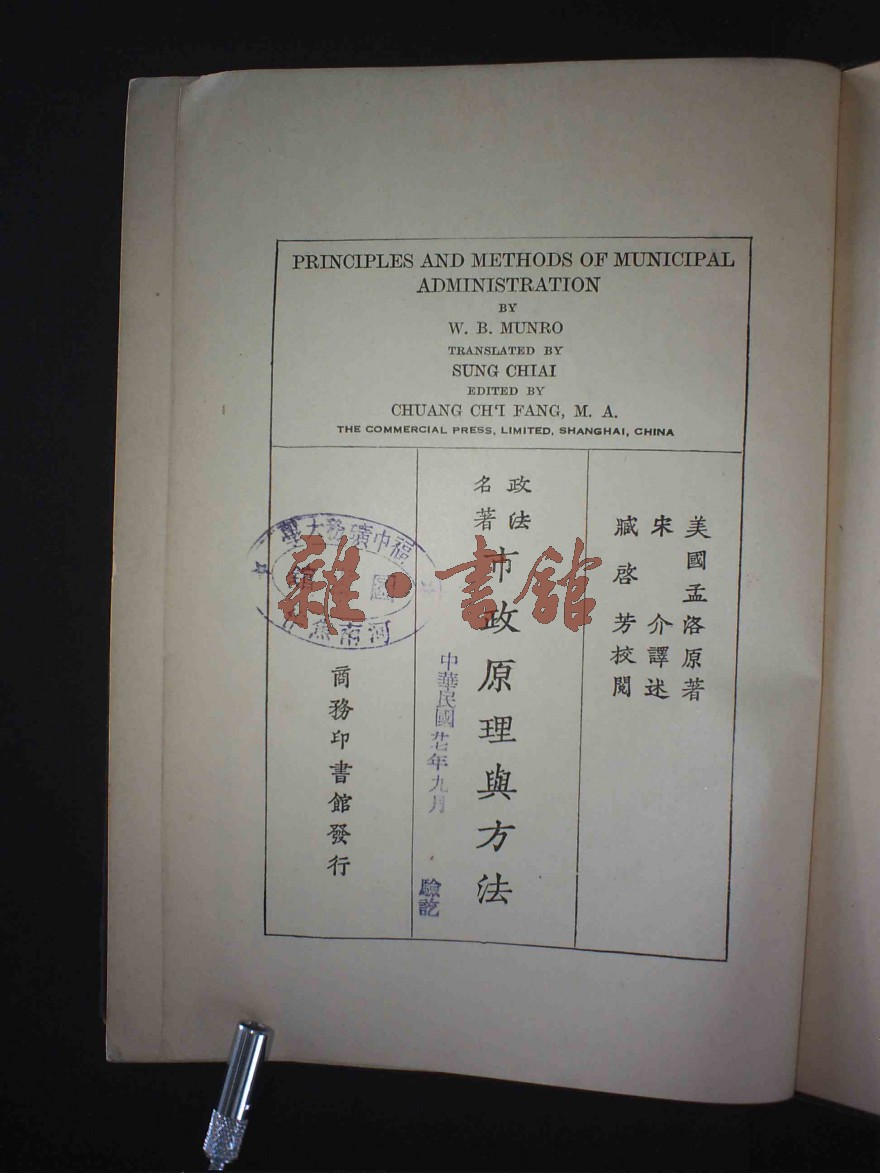 PRINCIPLES AND METHODS OF MUNICIPAL
ADMINISTRATION
BY
W. B. MUNRO
TRANSLATED BY
SUNG CHIAI
EDITED BY
CHUANG CH'I FANG, M. A.
THE COMMERCIAL PRESS, LIMITED, SHANGHAI, CHINA
美國孟洛原著
宋介譯述
臧啓芳校閱
政法
名著
市政原理與方法
中華民國廿七年九月
驗訖
商務印書館發行
福中礦務大學
圖館
河南焦作
雜·書館